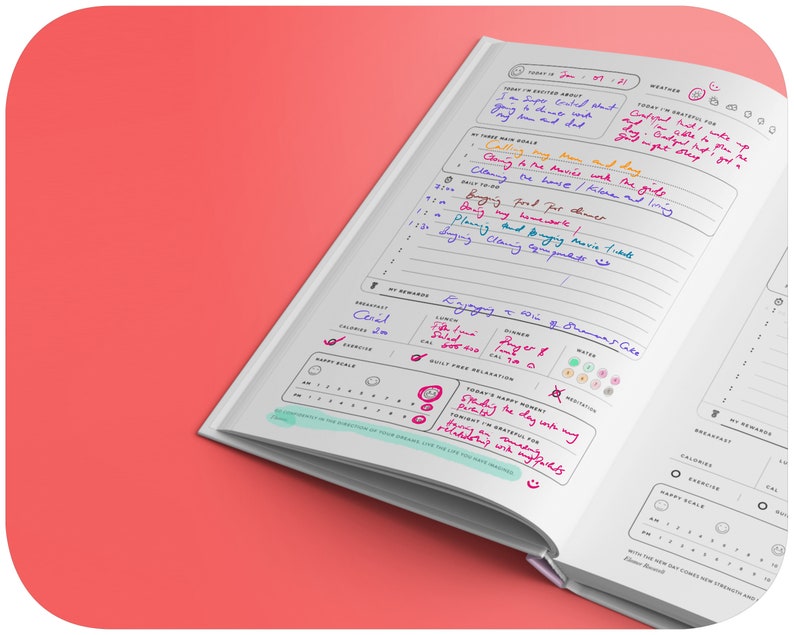 TODAY IS Jan : 01 : 21
WEATHER
TODAY I'M EXCITED ABOUT
I am Super Excited About
going to dinner with
my Mom and dad
TODAY I'M GRATEFUL FOR
Grateful that I woke up
and I am able to plan the
day. Grateful that I got a
good night sleep
MY THREE MAIN GOALS
1 Calling my Mom and day
2 Going to the Movies with the girls
3 Cleaning the house / Kitchen and living
DAILY TO-DO
7:00 Buying Food For dinner
9:00 Doing my homework /
1:00 Planing and Buying Movie tickets
1:30 Buying Cleaning equipments
MY REWARDS Enjoying a of Cake
BREAKFAST
Cerial
CALORIES 200
LUNCH
Salad
CAL 400
DINNER
Burger &
CAL 900
WATER
EXERCISE
GUILT FREE RELAXATION
MEDITATION
HAPPY SCALE
AM 1 2 3 4 5 6 7 8 9
PM 1 2 3 4 5 6 7 8 9
TODAY'S HAPPY MOMENT
Spending the day with my
parents
TONIGHT I'M GRATEFUL FOR
Having an amazing
relationship with my parents
GO CONFIDENTLY IN THE DIRECTION OF YOUR DREAMS. LIVE THE LIFE YOU HAVE IMAGINED.
MY REWARDS
BREAKFAST
CALORIES
CAL
EXERCISE
HAPPY SCALE
AM 1 2 3 4 5 6 7 8 9 10
PM 1 2 3 4 5 6 7 8 9 10
WITH THE NEW DAY COMES NEW STRENGTH AND
Eleanor Roosevelt